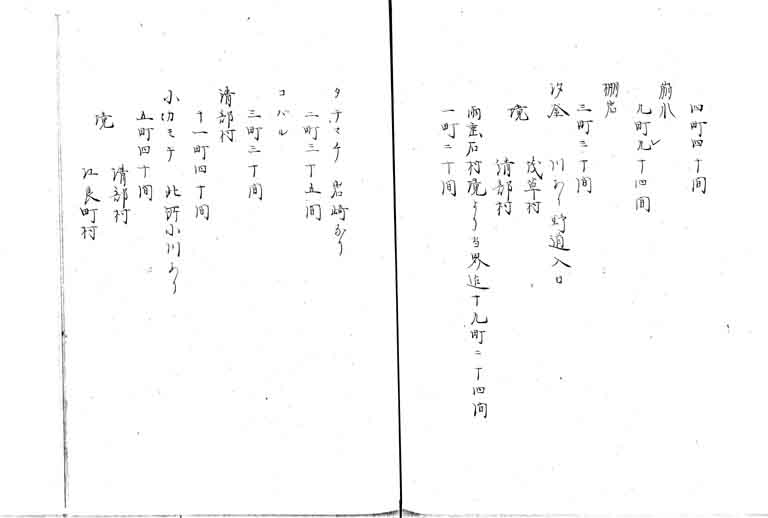 四町四十間
崩川
九町九十四間
棚岩
三町二十間
汐金 川あり野道入口
境 茂草村
清部村
雨垂石村境より当界迄十九町二十四間
一町二十間
タテマケ 岩崎あり
二町三十五間
コバル
三町三十間
清部村
十一町四十間
小切ミチ 此所小川あり
五町四十間
境 清部村
江良町村